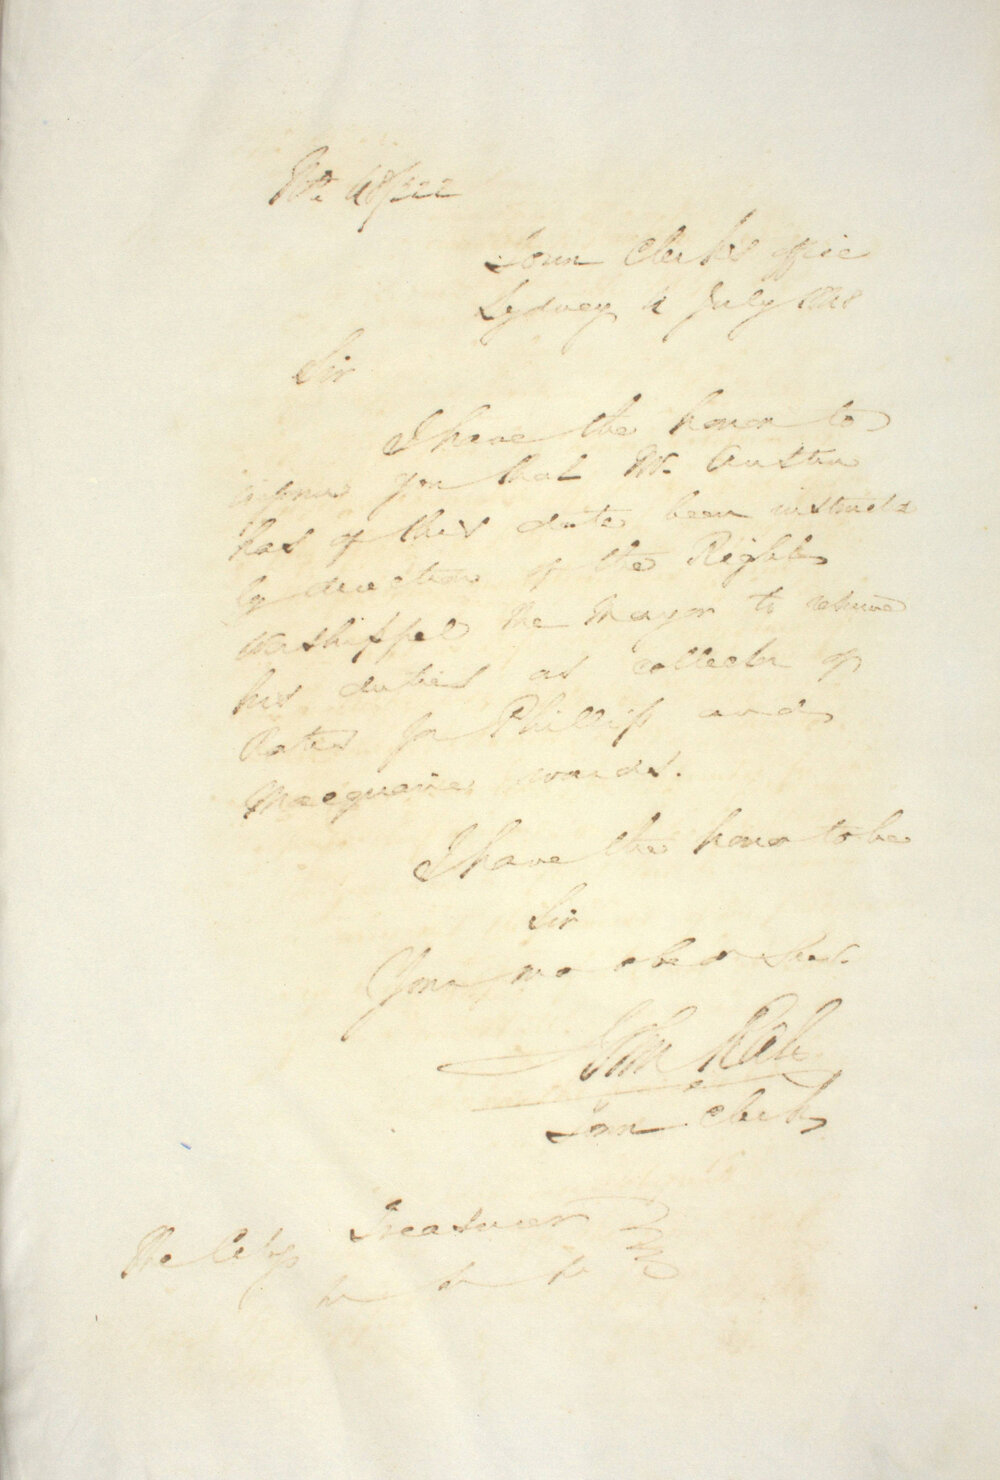 No. 48/322
Town Clerks office
Sydney 4 July 1848
Sir
I have the honor to
inform you that Mr. Austin
has of this date been instructed
by direction of the Right
Worshipful the Mayor to resume
his duties as collector of
Rates for Phillip and
Macquarie wards.
I have the honor to be
Sir
Your mo obed Servt.
John Rae
Town Clerk
The City Treasurer